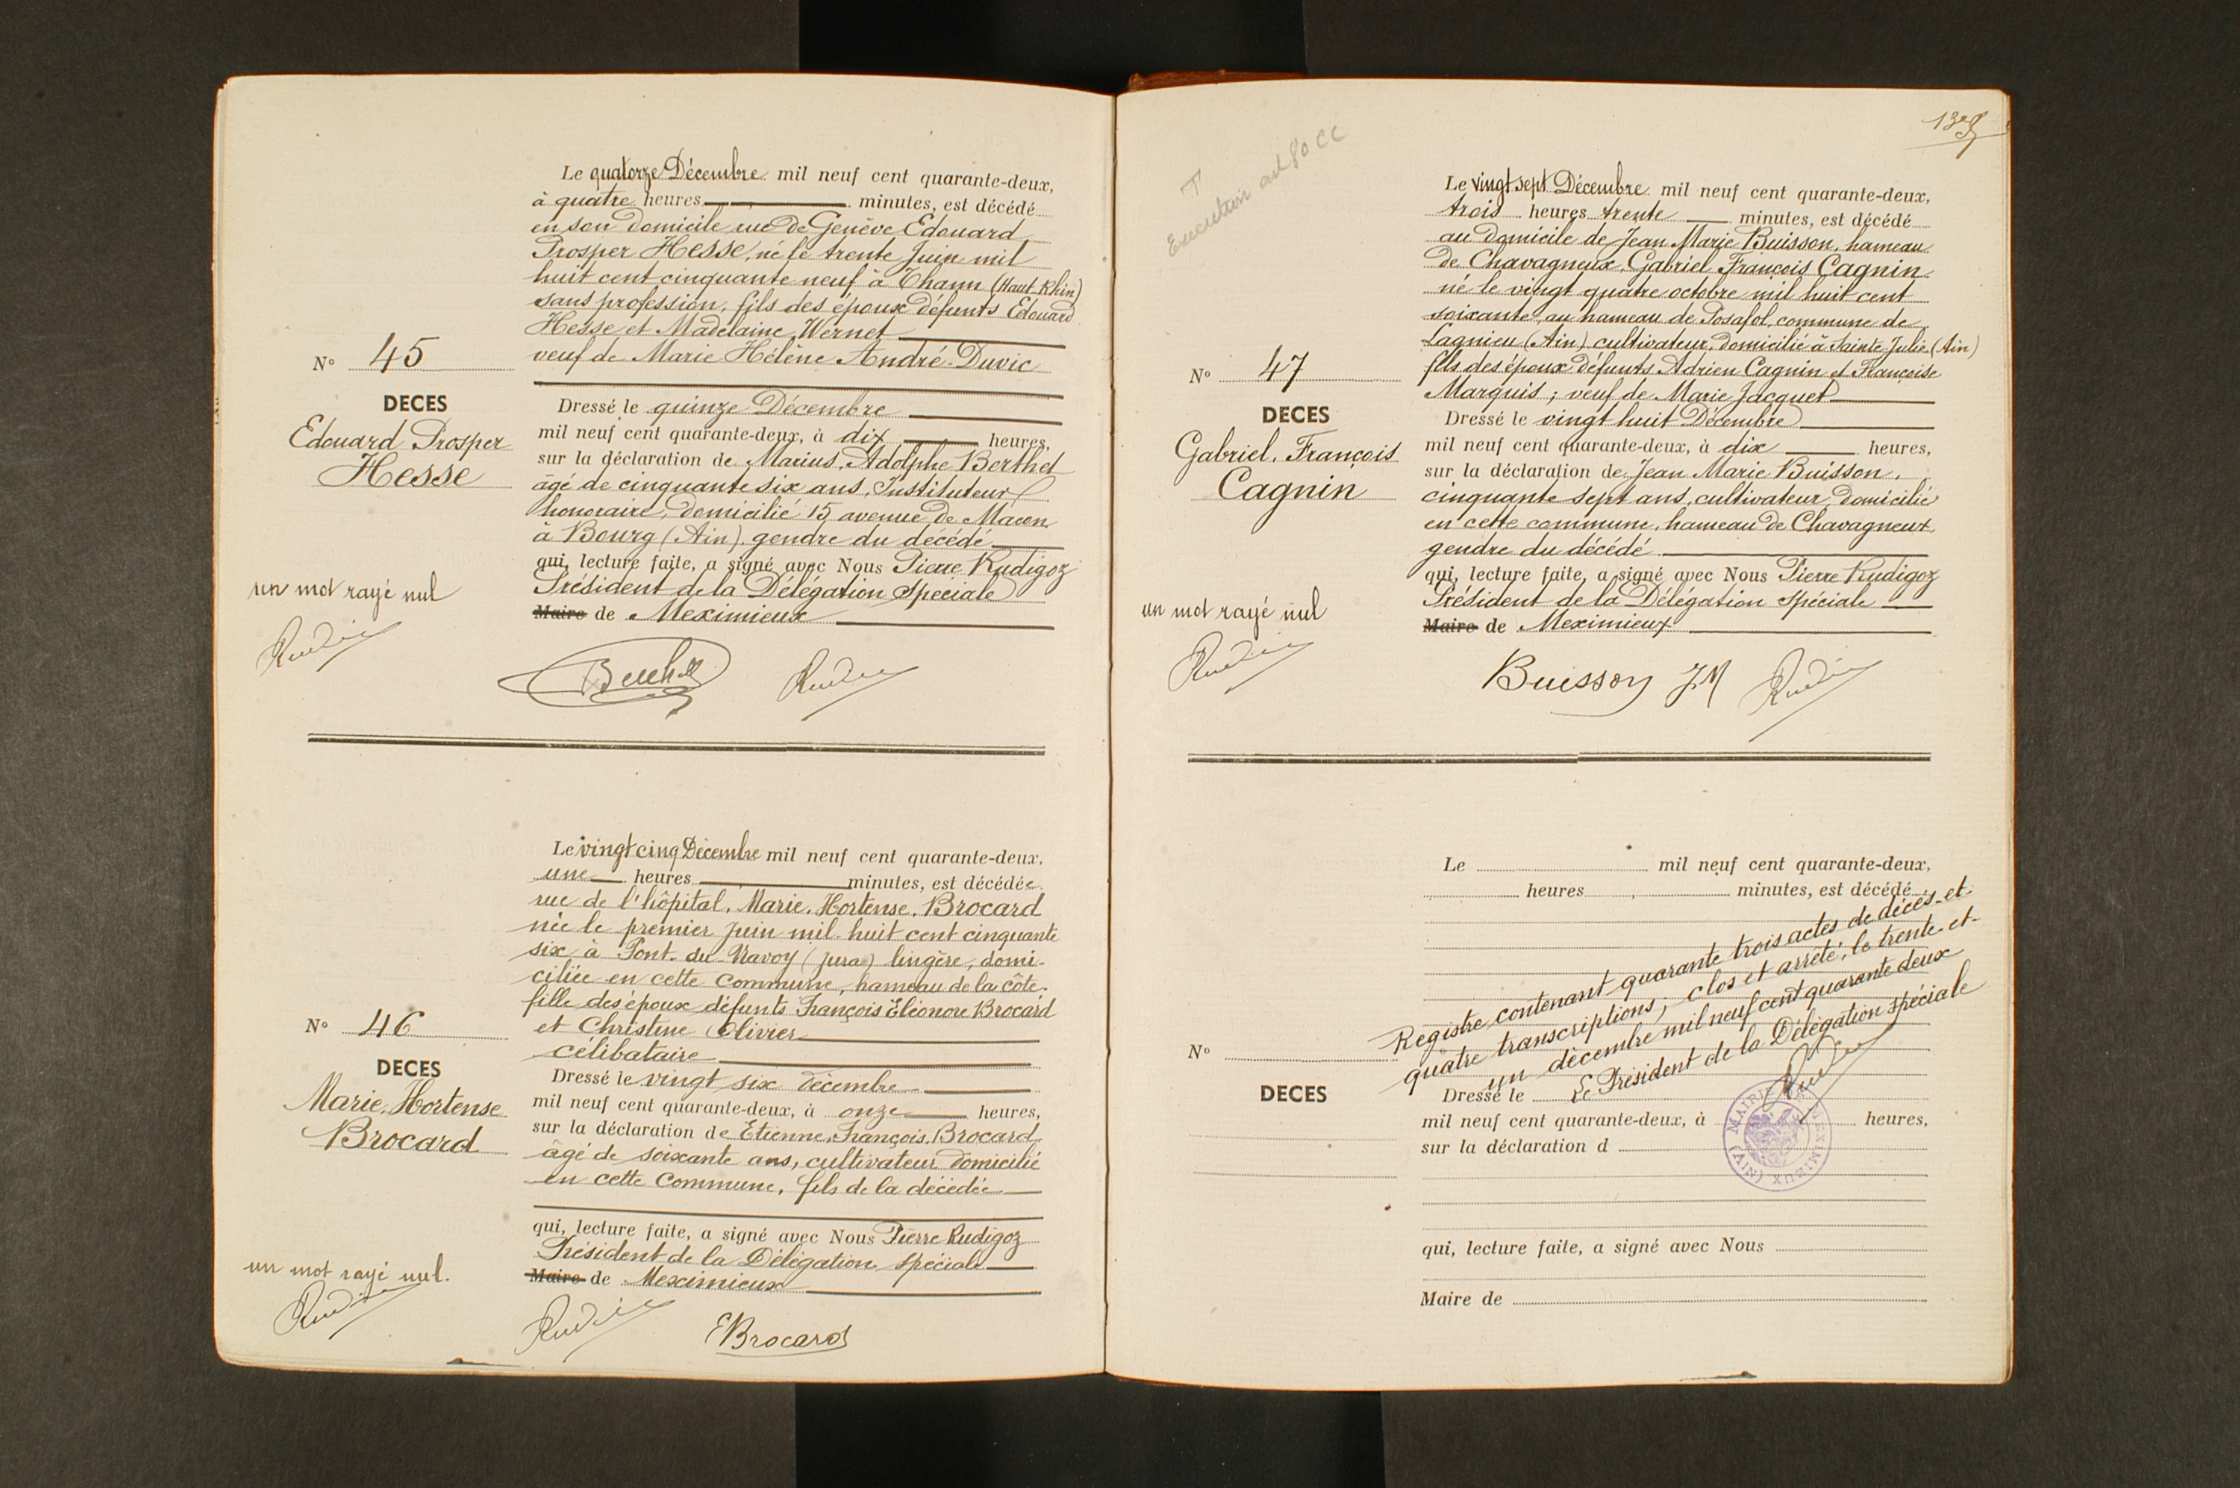 Le quatorze Décembre mil neuf cent quarante-deux,
à quatre heures minutes, est décédé
en son domicile rue de Genève Edouard
Prosper Hesse, né le trente Juin mil
huit cent cinquante neuf à Thann (Haut Rhin)
sans profession, fils des époux défunts Edouard
Hesse et Madelaine Wernet
veuf de Marie Hélène André-Duvic
N° 45
DECES
Edouard Prosper
Hesse
Dressé le quinze Décembre
mil neuf cent quarante-deux, à dix heures,
sur la déclaration de Marius, Adolphe Berthet
âgé de cinquante six ans, Instituteur
honoraire, domicilié 15 avenue de Mâcon
à Bourg (Ain). gendre du décédé
qui, lecture faite, a signé avec Nous Pierre Rudigoz
Président de la Délégation Spéciale
Maire de Meximieux
un mot rayé nul
Le vingt cinq Décembre mil neuf cent quarante-deux,
une heures minutes, est décédée
rue de l'hôpital, Marie, Hortense, Brocard
née le premier juin mil huit cent cinquante
six à Pont-du Navoy (Jura) lingère, domi-
ciliée en cette commune, hameau de la côte.
fille des époux défunts François Eléonore Brocard
et Christine Olivier
célibataire
N° 46
DECES
Marie, Hortense
Brocard
Dressé le vingt six décembre
mil neuf cent quarante-deux, à onze heures,
sur la déclaration de Etienne, François, Brocard
âgé de soixante ans, cultivateur domicilié
en cette commune, fils de la décédée
qui, lecture faite, a signé avec Nous Pierre Rudigoz
Président de la Délégation Spéciale
Maire de Meximieux
un mot rayé nul.
EBrocard
Le vingt sept Décembre mil neuf cent quarante-deux,
trois heures trente minutes, est décédé
au domicile de Jean Marie Buisson, hameau
de Chavagneux, Gabriel François Cagnin
né le vingt quatre octobre mil huit cent
soixante, au hameau de Posafol, commune de
Lagnieu (Ain) cultivateur, domicilié à Sainte-Julie (Ain)
fils des époux défunts Adrien Cagnin et Françoise
Marquis; veuf de Marie Jacquet
N° 47
DECES
Gabriel, François
Cagnin
Dressé le vingt huit Décembre
mil neuf cent quarante-deux, à dix heures,
sur la déclaration de Jean Marie Buisson,
cinquante sept ans, cultivateur, domicilié
en cette commune, hameau de Chavagneux
gendre du décédé
qui, lecture faite, a signé avec Nous Pierre Rudigoz
Président de la Délégation Spéciale
Maire de Meximieux
un mot rayé nul
Buisson JM
Le mil neuf cent quarante-deux,
heures minutes, est décédé
Registre contenant quarante trois actes de décès et
quatre transcriptions, clos et arrêté, le trente et
un décembre mil neuf cent quarante deux
Le Président de la Délégation spéciale
N°
DECES
Dressé le
mil neuf cent quarante-deux, à heures,
sur la déclaration d
MAIRIE MEXIMIEUX (AIN)
qui, lecture faite, a signé avec Nous
Maire de